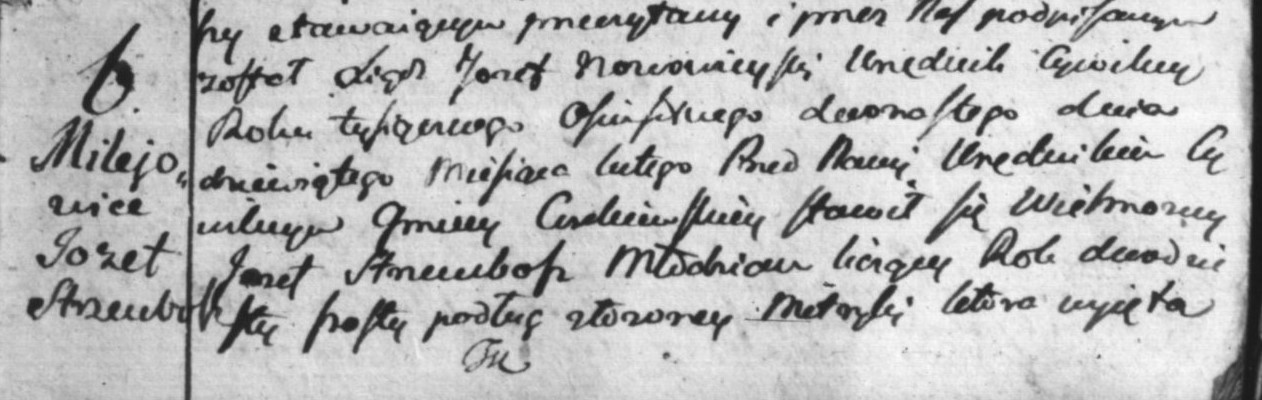 6
Milejo„
wice
Jozef
Strzembosz
stawaiącym przeczytany i przez Nas podpisanym
został Xiądz Jozef Urzędnik Cywilny
Roku tysiącznego Osmsetnego dwonastego dnia
dziewiątego Miesiąca lutego Przed Nami Urzędnikiem Cy
wilnym Gminy stawił się Wielmozny
Jozef Strzembosz Młodzian liczący Rok dwudzie
sty szosty podług złozoney Metryki ktora wyięta